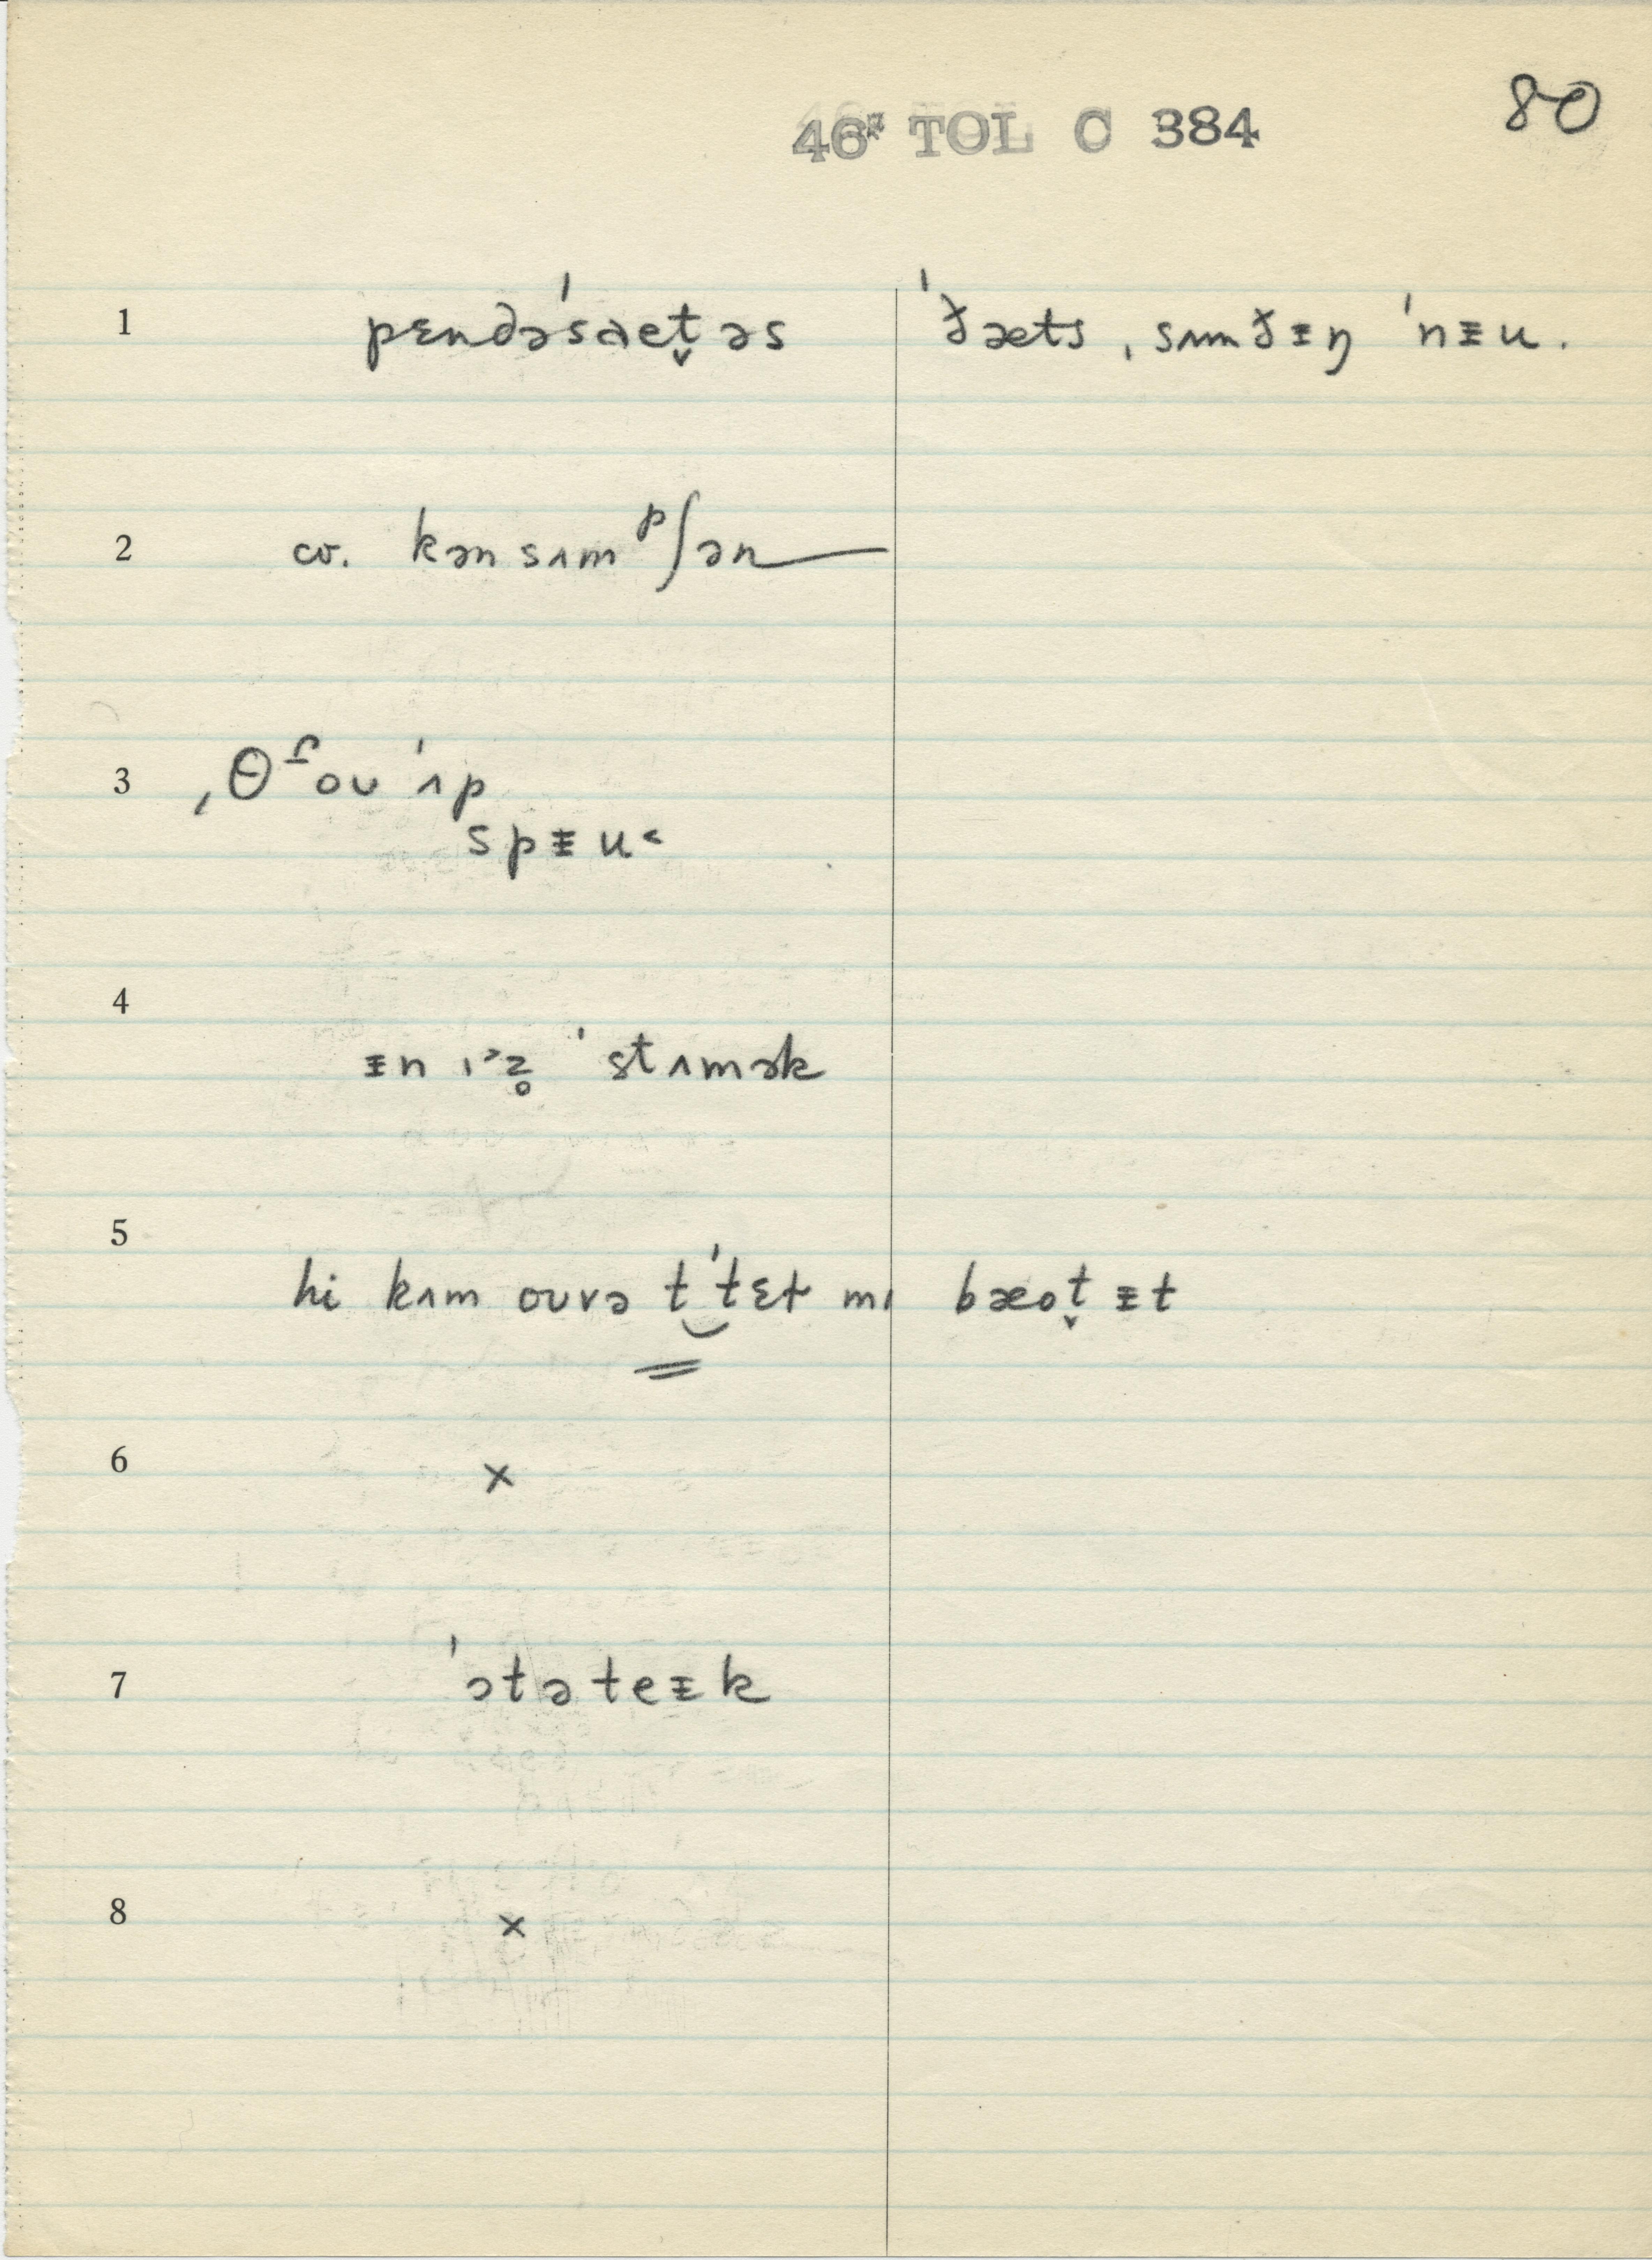 46* TOL C 384
80
1 pɛndəˈsaet̬əs ˈðæts, sʌmðɪ̵ŋ ˈnɪ̵u.
2 cv. kənsʌmᵖʃən
3 ˌθʳ̯oʊ ˈʌp
spɪ̵u˂
4
ɪ̵n ɪᵊz̥ ˈstʌmək
5
hi kʌm oʊvə t‿ˈtɛt mɪ bæot̬ ɪ̵t
6 ×
7 ˈətəteɪ̵k
8 ×